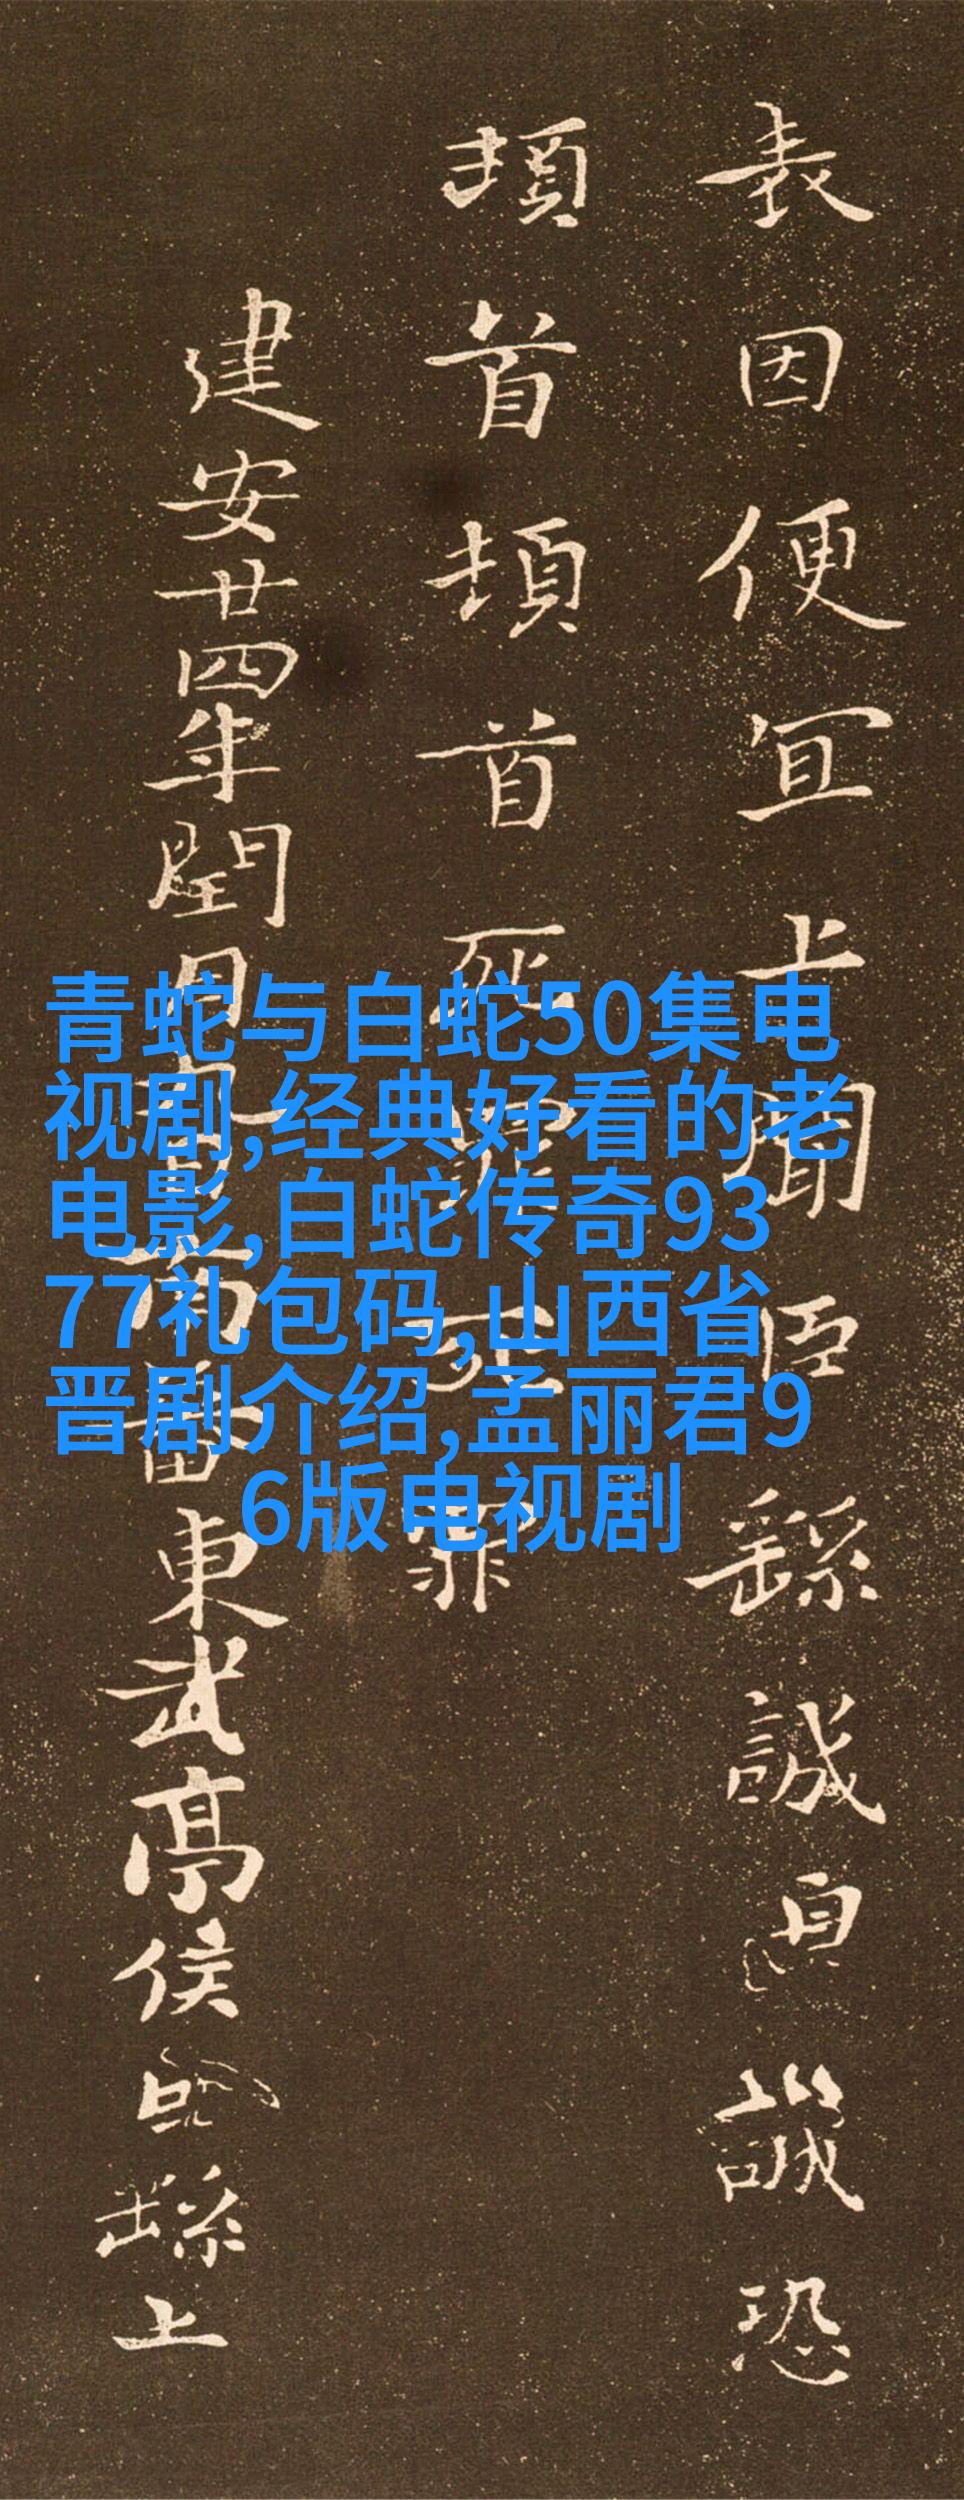 表因便宜上聞臣繇誠誠恐
頓首頓首死罪死罪
建安廿四年閏月九日南蕃東武亭侯臣繇上
青蛇与白蛇50集电
视剧,经典好看的老
电影,白蛇传奇93
77礼包码,山西省
晋剧介绍,孟丽君9
6版电视剧